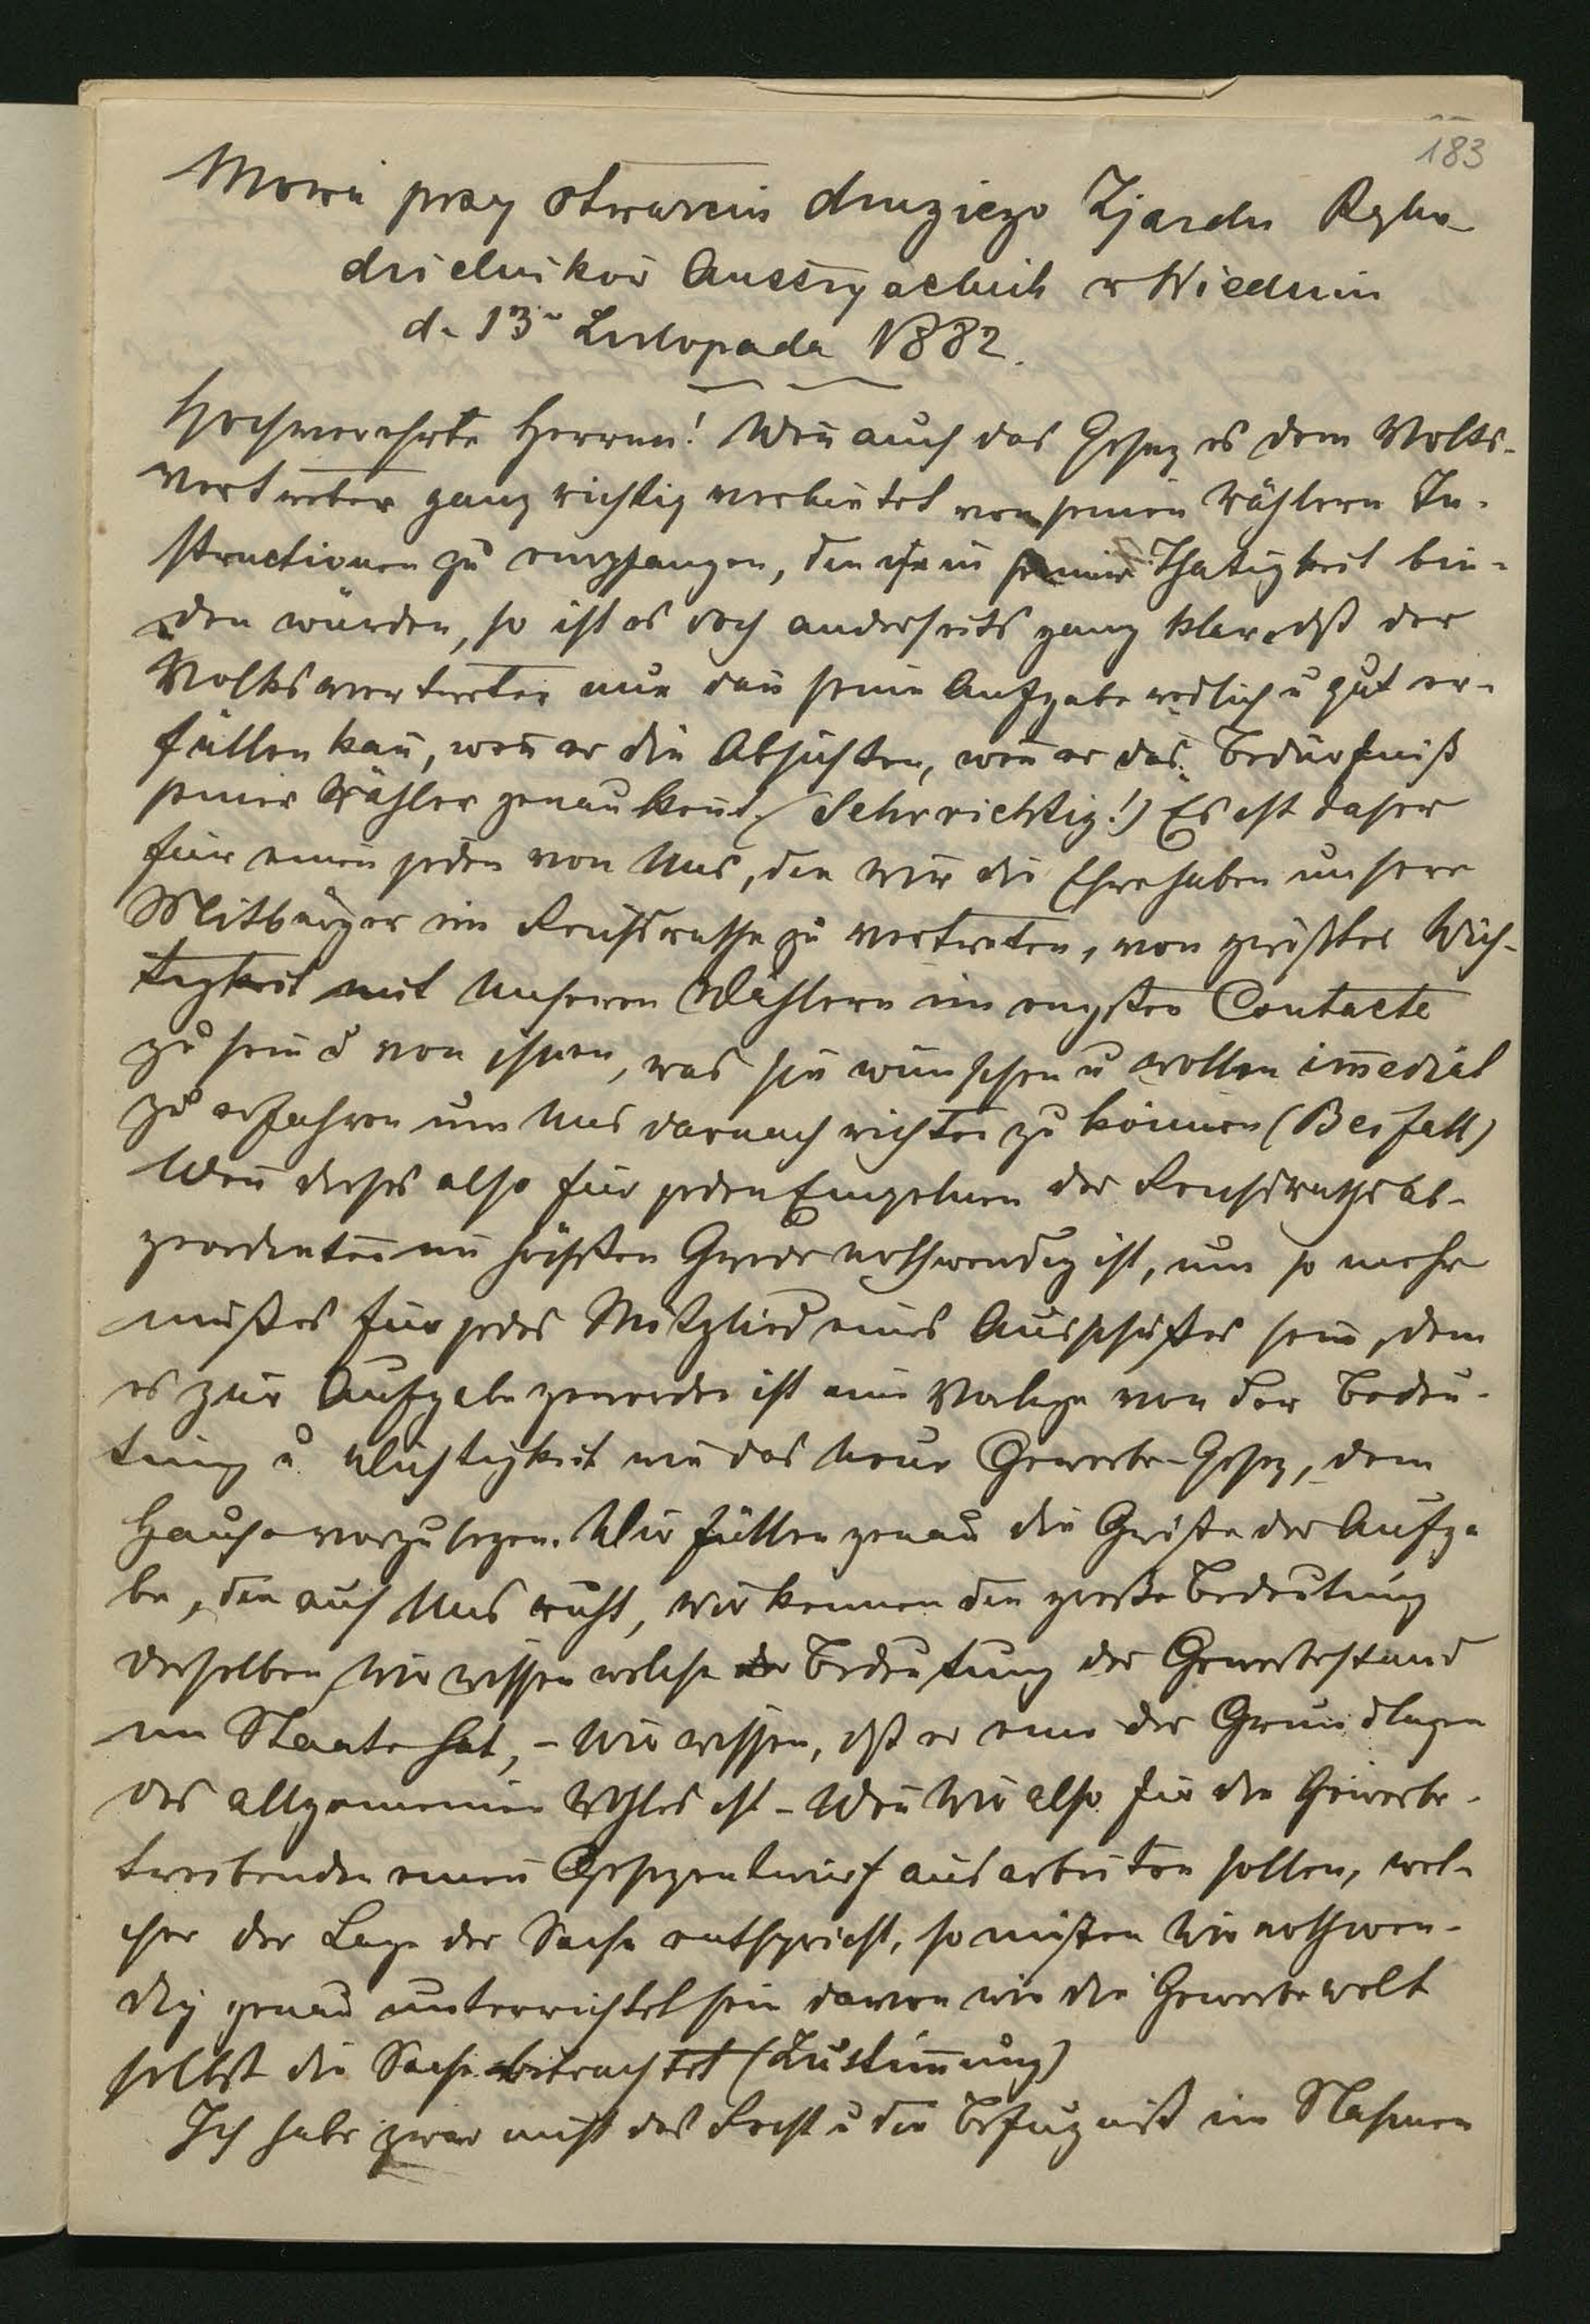 183
Mowa przy otwarciu drugiego Zjazdu Ręko-
dzielników Austryackich w Wiedniu
d. 13 Listopada 1882.
Hochverehrte Herren! Wen̄ auch das Gesez es dem Volks-
vertreter ganz richtig verbietet von seinen Wählern In-
structionen zu empfangen, die ihn in seiner Thätigkeit bin-
den würden, so ist es doch anderseits ganz klar, dß der
Volksvertreter nur dan̄ seine Aufgabe redlich u gut er-
füllen kan̄, wen̄ er die Absichten, wen̄ er das Bedürfniß
seiner Wähler genau kent. (Sehr richtig!) Es ist daher
für einen jeden von Uns, die wir die Ehre haben unsere
Mitbürger im Reichsrathe zu vertreten, von größter Wich-
tigkeit mit Unseren Wählern im engsten Contacte
zu sein u von ihnen, was sie wünschen u wollen im̄ediat
zu erfahren um Uns darnach richten zu können (Beifall)
Wen̄ dieses also für jeden Einzelnen der Reichsrathsab-
geordneten im höchsten Grade nothwendig ist, um so mehr
muß es für jedes Mitglied eines Ausschußes sein, dem
es zur Aufgabe geworden ist eine Vorlage von der Bedeu-
tung u Wichtigkeit wie das Neue Gewerbe-Gesez, dem
Hause vorzulegen. Wir fühlen genau die Größe der Aufga
be, die auf Uns ruht, wir kennen die große Bedeutung
derselben, wir wissen welche Bedeutung der Gewerbestand
im Staate hat, – wir wissen, dß er eine der Grundlagen
des allgemeinen Wohles ist – Wen̄ Wir also für die Gewerbe-
treibenden einen Gesezentwurf ausarbeiten sollen, wel-
cher der Lage der Sache entspricht, so müßen Wir nothwen-
dig genau unterrichtet sein davon wie die Gewerbewelt
selbst die Sache betrachtet (Zustim̄ung)
Ich habe zwar nicht das Recht u die Befugniß im Nahmen